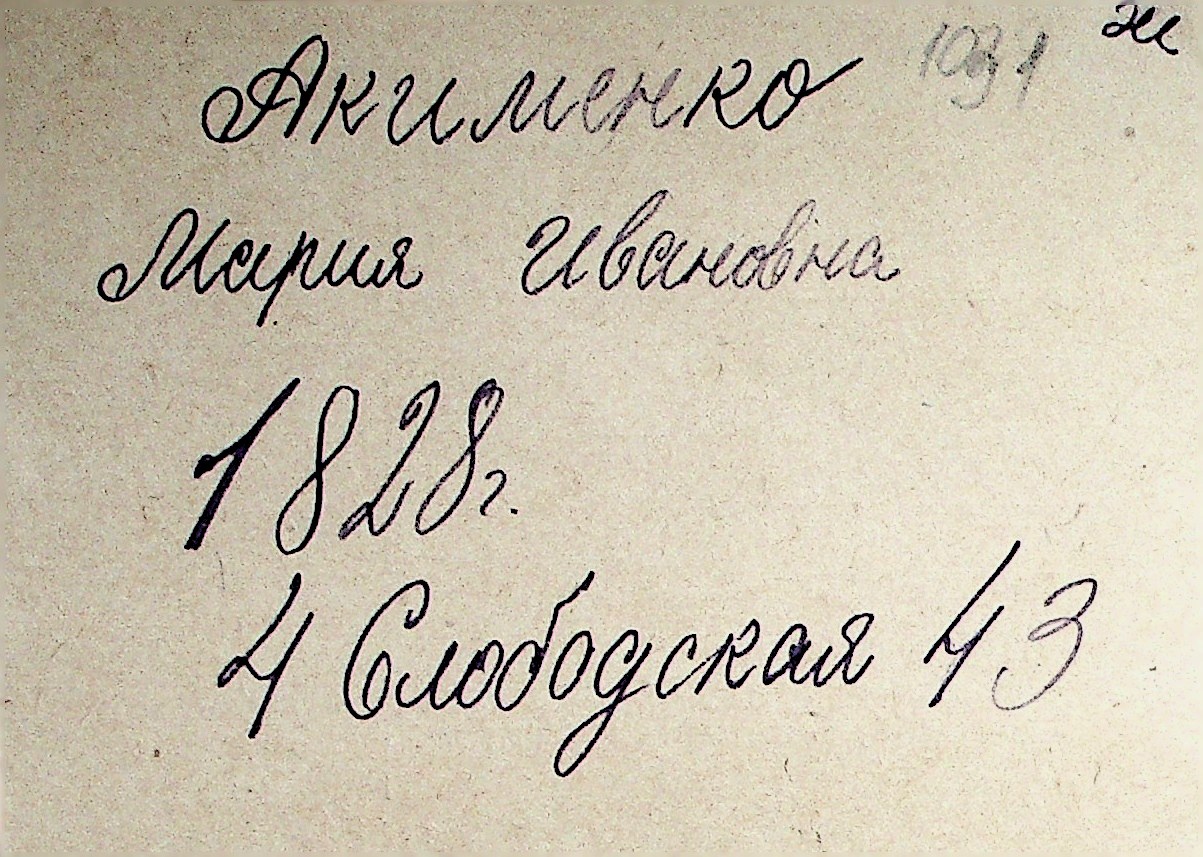 ж
Акименко
Мария Ивановна
1828г.
4 Слободская 43